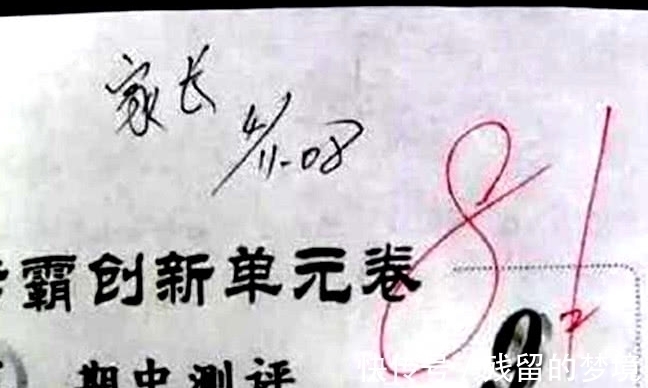 家长
4/11-08
81
霸创新单元卷
期中测评
快传号 残留的梦境